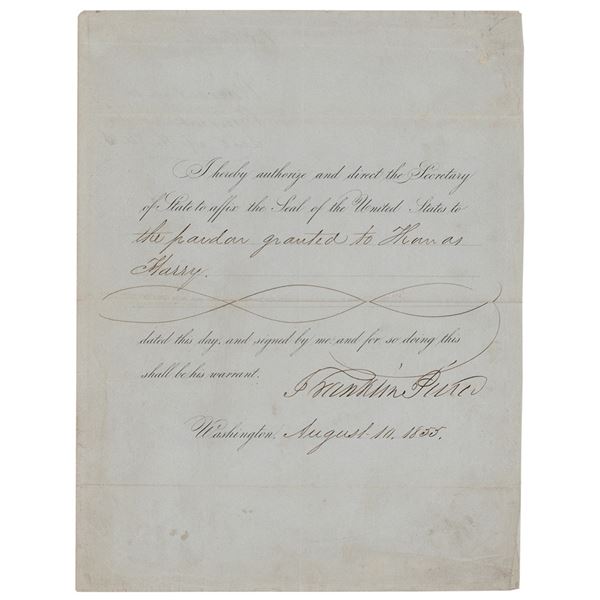 I hereby authorize and direct the Secretary
of State to affix the Seal of the United States to
the pardon granted to Thomas
Harry.
dated this day, and signed by me and for so doing this
shall be his warrant.
Franklin Pierce
Washington, August 10, 1855.